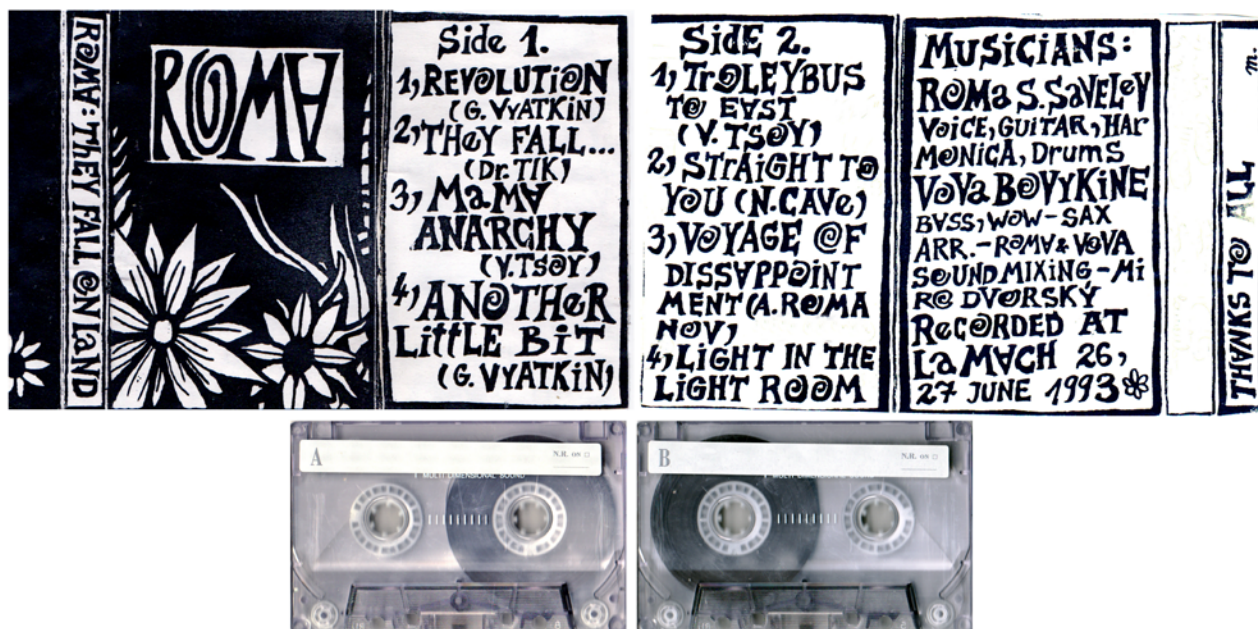 ROMA: THEY FALL ON LAND
ROMA
Side 1.
1, REVOLUTION
(G. VYATKIN)
2, THEY FALL...
(Dr. TIK)
3, MaMA
ANARCHY
(V.TSOY)
4, ANOTHER
LittLE BiT
(G. VYATKiN)
SidE 2.
1, TrOLEYBUS
TO EAST
(V. TSOY)
2, STRAiGHT TO
YOU (N.CAVe)
3, VOYAGE OF
DISSAPPOINT
MENT (A.ROMA
NOV)
4, LiGHT IN THE
LiGHT ROOM
MUSiCiANS:
ROMa S. SaVELeY
VOiCE, GUiTAR, HAr
MONiCA, DrUMS
VOVa BOVYKiNE
BASS, WOW-SAX
ARR.-ROMA & VOVA
SOUND MIXING-Mi
RO DVORSKÝ
ReCORDED AT
La MACH 26,
27 JUNE 1993
m.
A
N.R. ON □
B
N.R. ON □